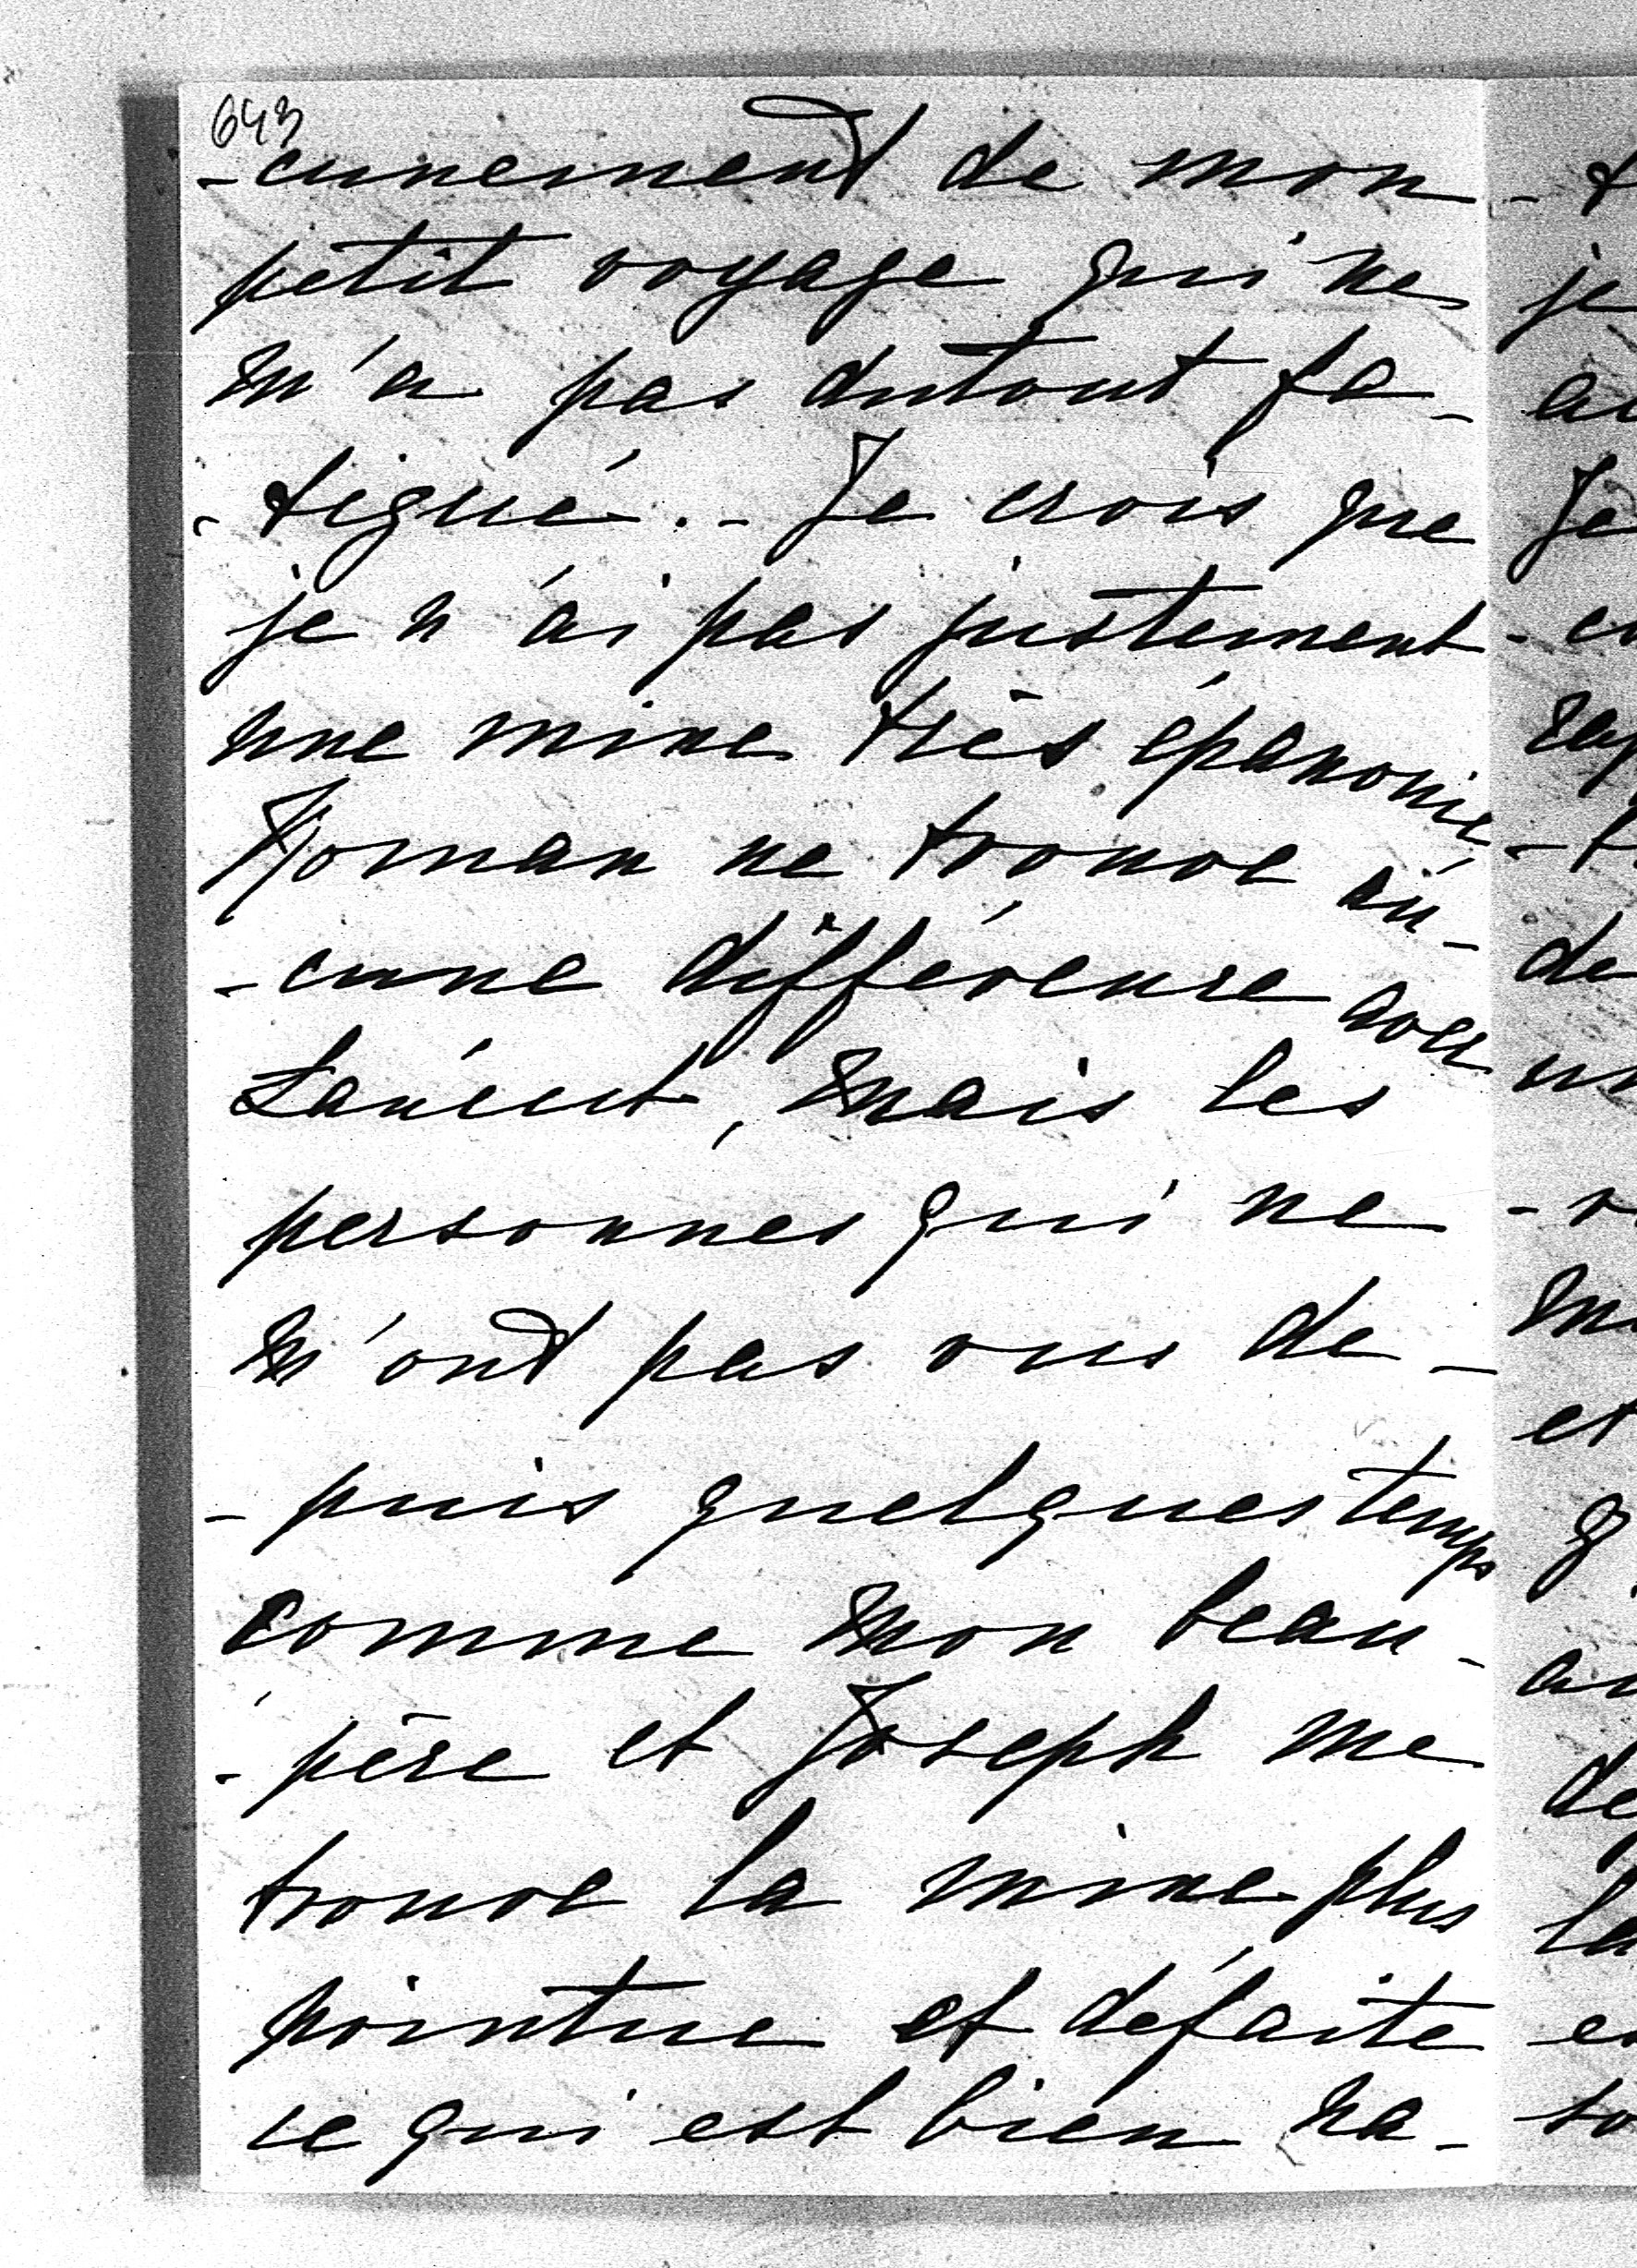 643
-cunement de mon
petit voyage qui ne
m'a pas dutout fa-
-tigué. - Je crois que
je n'ai pas justement
une mine très épanouie
Roman ne trouve au-
-cune différence avec
Lancut, mais les
personnes qui ne
m'ont pas vus de-
-puis quelques temps
comme mon beau-
-père et Joseph me
trouve la mine plus
pointue et défaite
ce qui est bien na-